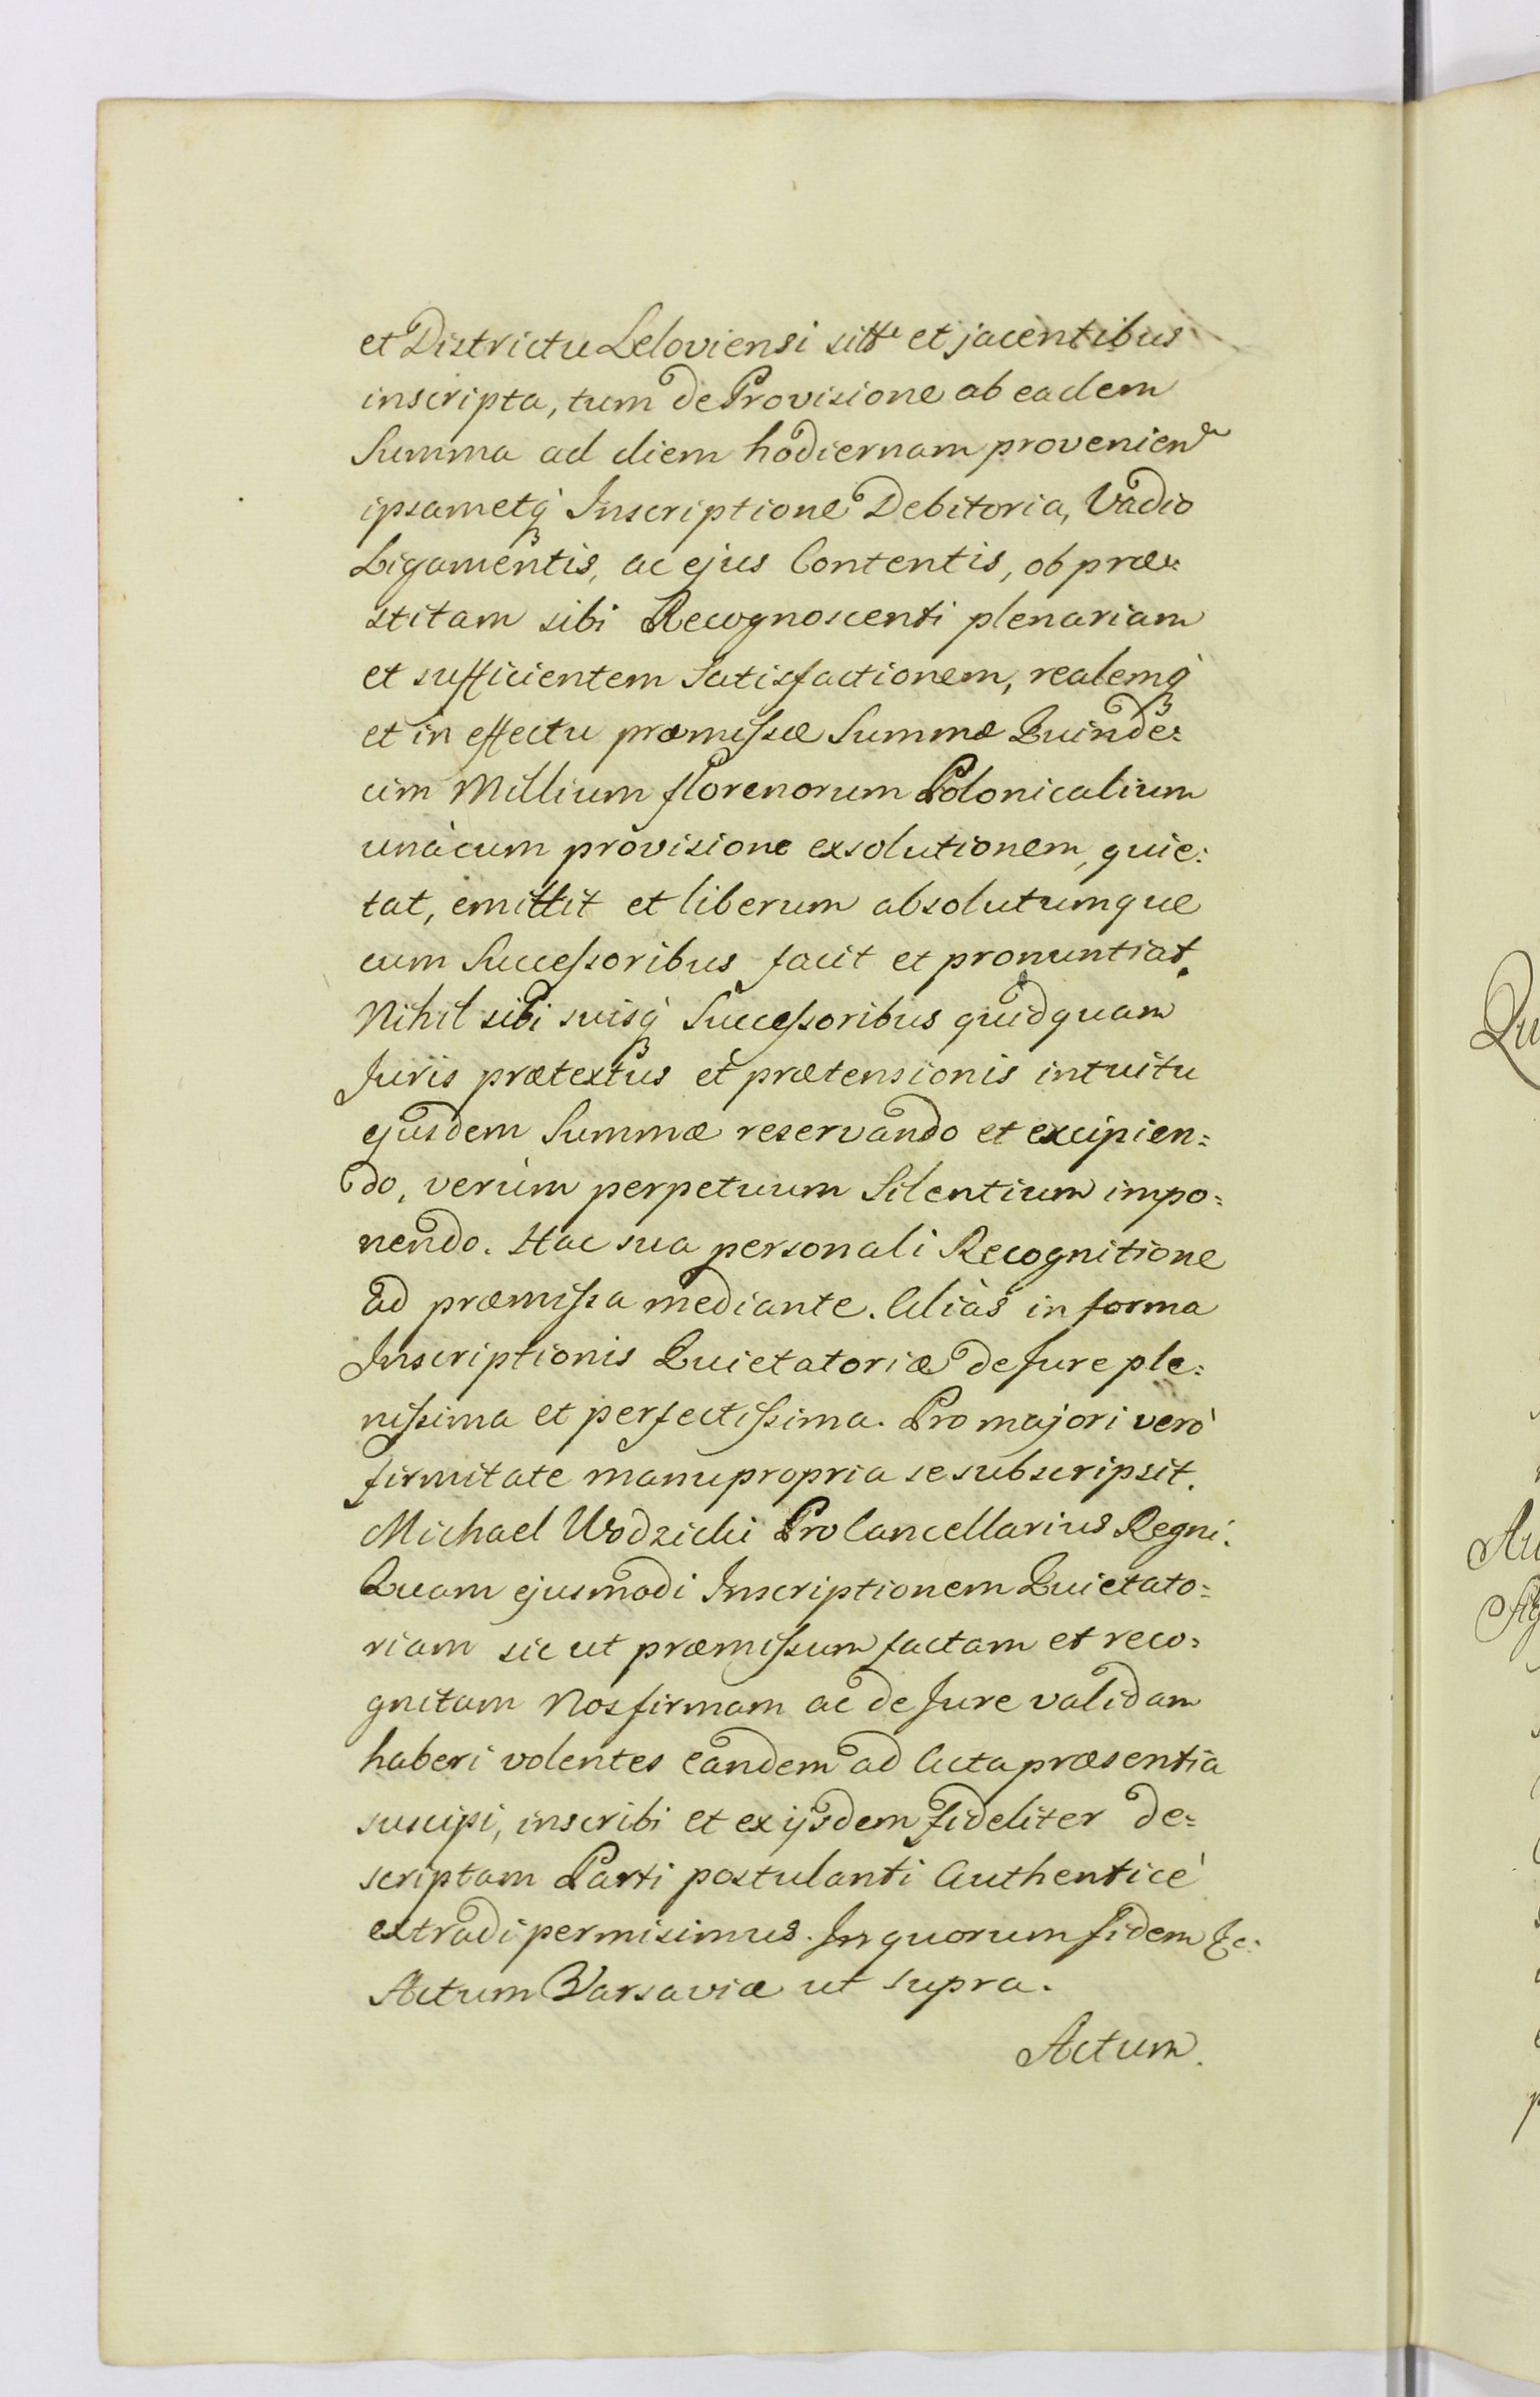 et Districtu Leloviensi sitt͏ͤ et jacentibus
inscripta, tum de Provisione ab eadem
Summa ad diem hodiernam provenien
ipsametq́ Inscriptione Debitoria, Vadio
Ligamentis, ac ejus Contentis, ob præ=
stitam sibi Recognoscenti plenariam
et sufficientem Satisfactionem, realemq́
et in effectu præmissæ Summæ Quinde=
cim Millium florenorum Polonicalium
unàcum provisione exsolutionem, quie=
tat, emittit et liberum absolutumque
cum Successoribus facit et pronuntiat.
Nihil sibi suisq́ Successoribus quidquam
Juris prætextus et prætensionis intuitu
ejusdem Summæ reservando et excipien=
do, verùm perpetuum Silentium impo=
nendo. Hac sua personali Recognitione
ad præmissa mediante. Aliàs in forma
Inscriptionis Quietatoriæ de Jure ple=
nissima et perfectissima. Pro majori verò
firmitate manu propria se subscripsit.
Michael Wodzicki ProCancellarius Regni.
Quam ejusmodi Inscriptionem Quietato=
riam sic ut præmissum factam et reco=
gnitam Nos firmam ac de Jure validam
haberi volentes eandem ad Acta præsentia
suscipi, inscribi et ex ijsdem fideliter de=
scriptam Parti postulanti Authenticè
extradi permisimus. In quorum fidem &c.
Actum Varsaviæ ut supra.
Actum.